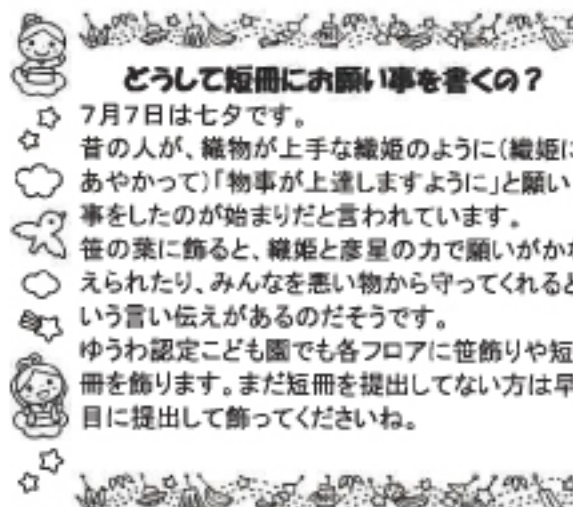 どうして短冊にお願い事を書くの？
7月7日は七夕です。
昔の人が、織物が上手な織姫のように（織姫に
あやかって）「物事が上達しますように」と願い
事をしたのが始まりだと言われています。
笹の葉に飾ると、織姫と彦星の力で願いがかな
えられたり、みんなを悪い物から守ってくれると
いう言い伝えがあるのだそうです。
ゆうわ認定こども園でも各フロアに笹飾りや短
冊を飾ります。まだ短冊を提出してない方は早
目に提出して飾ってくださいね。